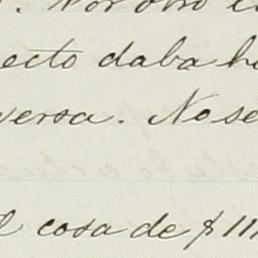 . Por otro
ecto daba h
versa. No se
l cosa de $ 111